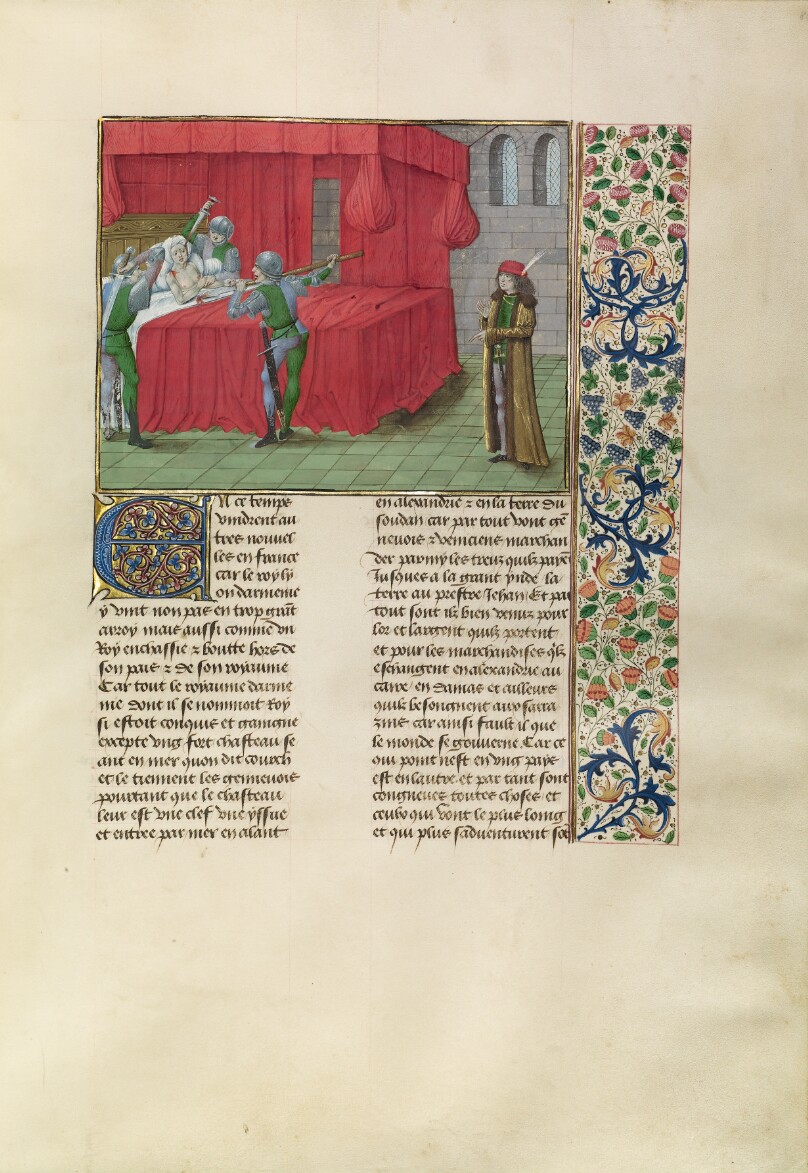 En ce temps
vindrent au
tres nouvel
les en france
car le roy ly
on darmenie
y vint non pas en trop grāt
arroy mais aussi comme vn
Roy enchassie ⁊ boutte hors de
son pais ⁊ de son royaume
Car tout le royaume darme
nie dont il se nommoit Roy
si estoit conquis et gaingne
excepte vng fort chasteau se
ant en mer quon dit courch
et le tiennent les gennevois
pourtant que le chasteau
leur est vne clef vne yssue
et entree par mer en alant
en alexandrie ⁊ en la terre du
soudan car par tout vont gē
nevois ⁊ veniciens marchan
der parmy les treuz quilz paient
Jusques a la grant ynde la
terre au prestre Jehan Et par
tout sont ilz bien venuz pour
lor et largent quilz portent
et pour les marchandises qlz
eschangent en alexandrie au
caire en damas et ailleurs
quilz besongnent aux sarra
zins car ainsi fault il que
le monde se gouverne Car ce
qui point nest en vng pays
est en lautre et par tant sont
congneues toutes choses et
ceulx qui vont le plus loing
et qui plus sadventurent sōt